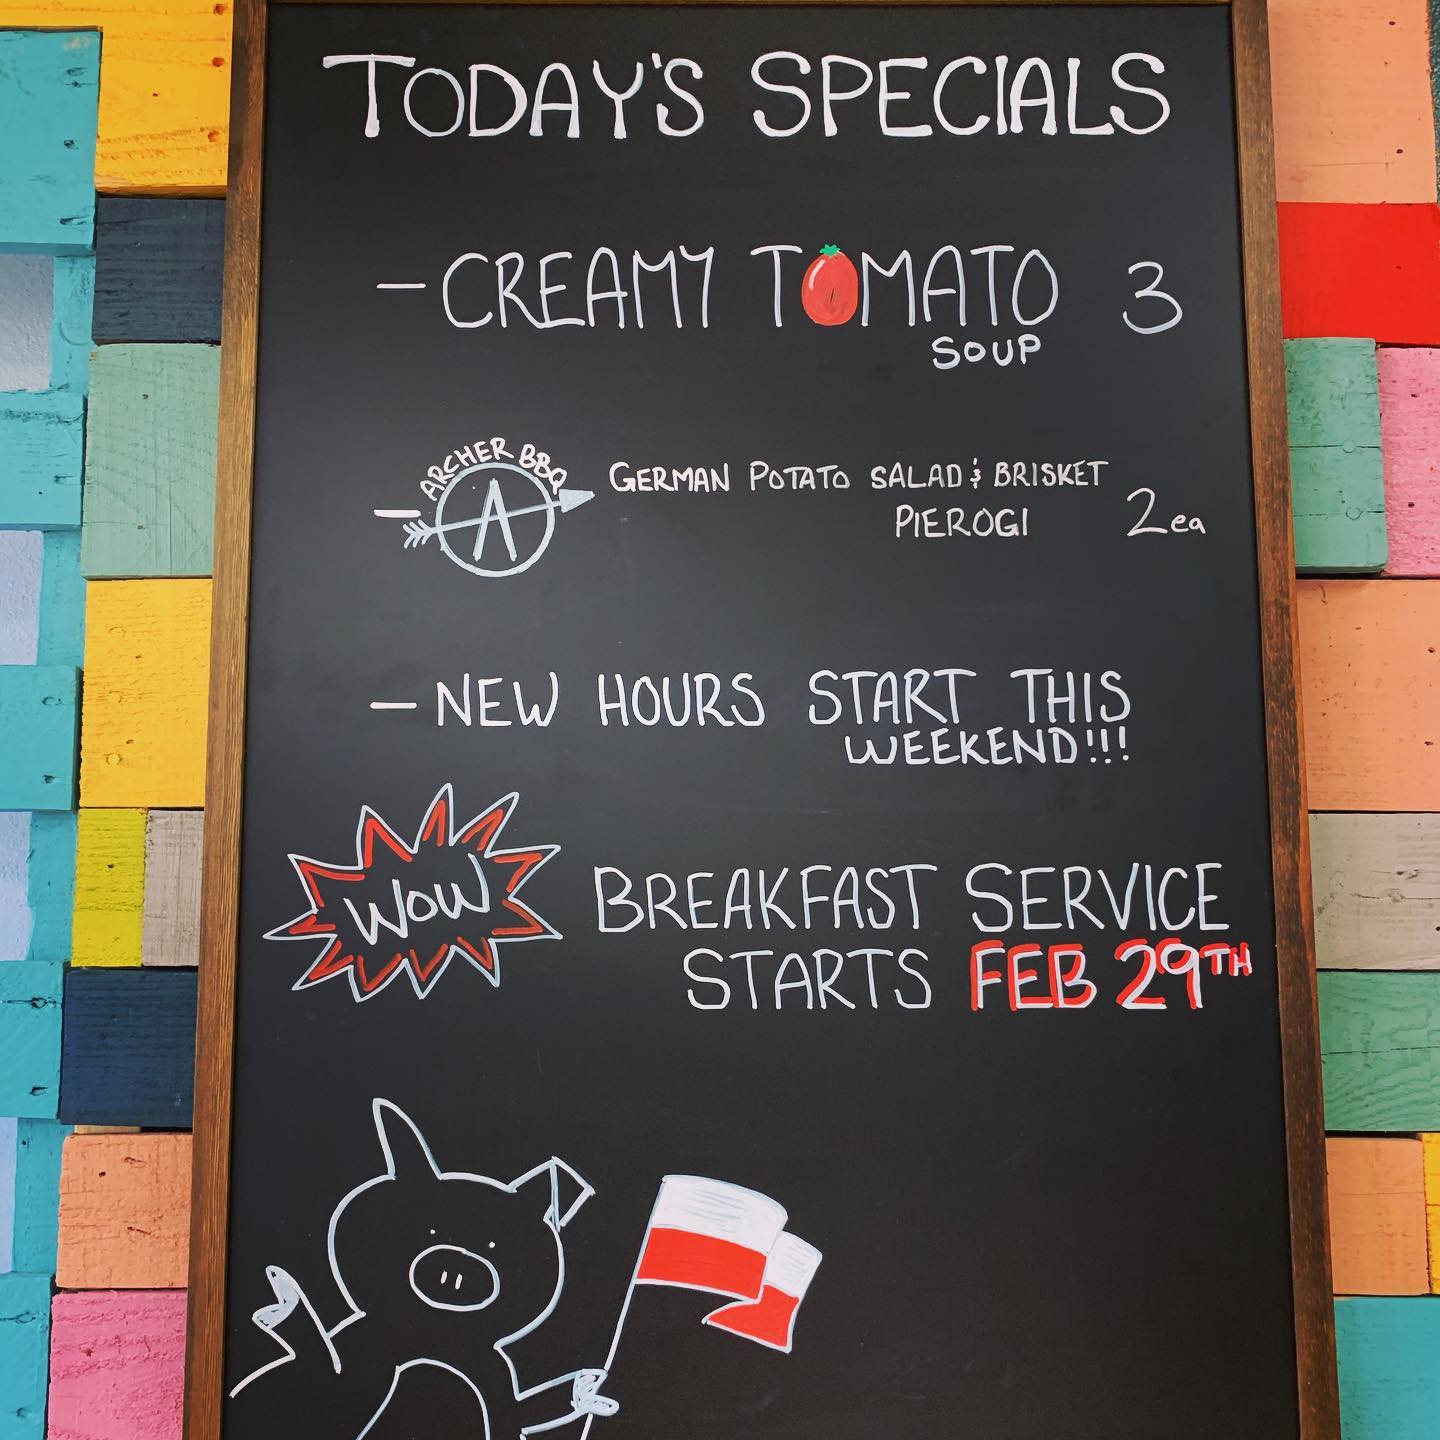 TODAY'S SPECIALS
- CREAMY TOMATO 3
SOUP
- ARCHER BBQ
A
GERMAN POTATO SALAD & BRISKET
PIEROGI 2ea
- NEW HOURS START THIS
WEEKEND!!!
WOW
BREAKFAST SERVICE
STARTS FEB 29TH